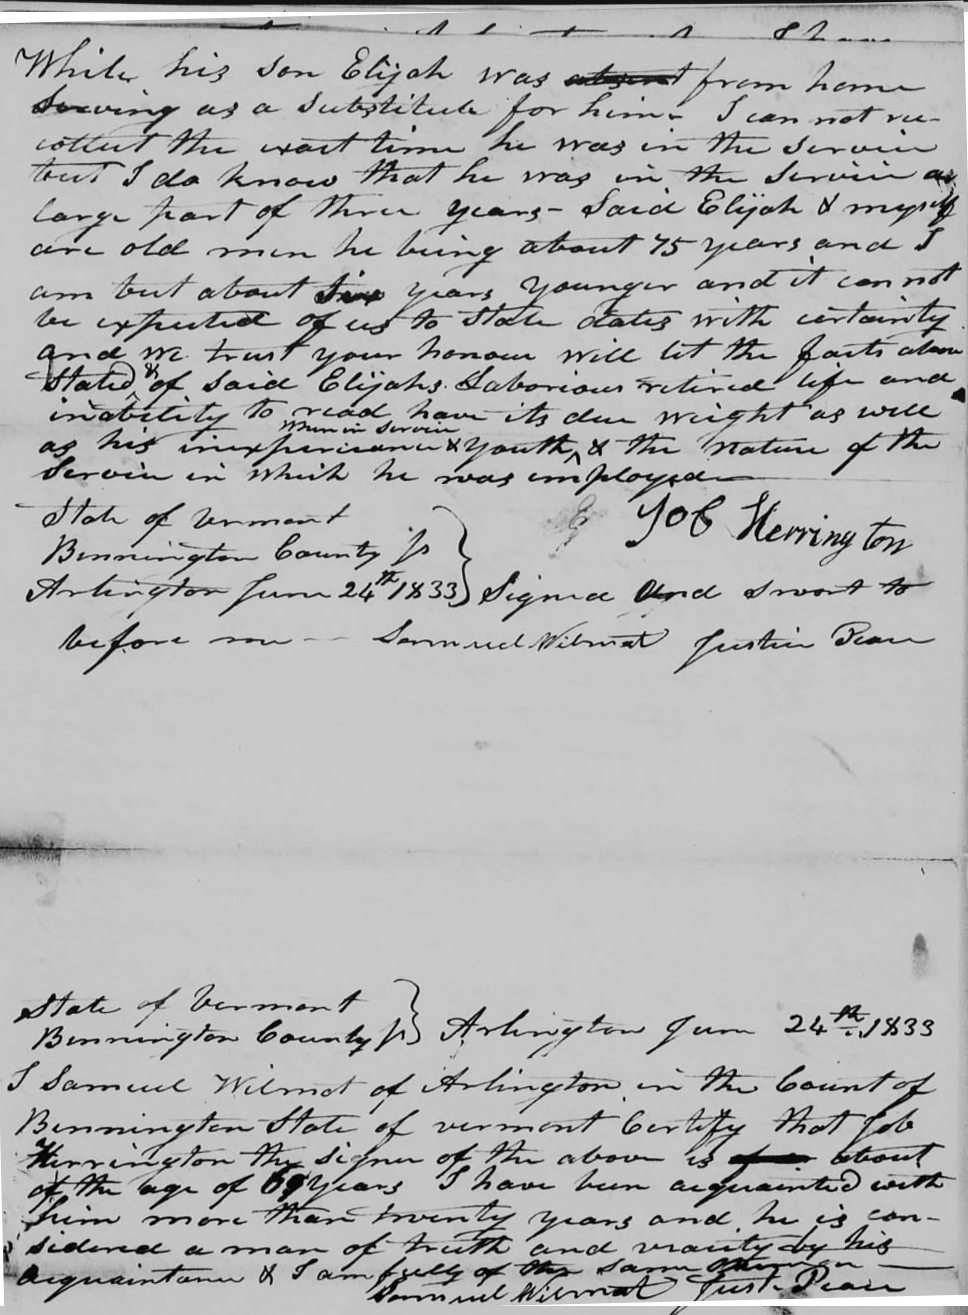 While his son Elijah was absent from home
Serving as a Substitute for him - I can not rec-
ollect the exact time he was in the Service
but I do know that he was in the Service a
large part of three years - Said Elijah & myself
are old men he being about 75 years and I
am but about Six years younger and it can not
be expected of us to State dates with certainty
and we trust your honour will let the facts above
Stated & of Said Elijahs Laborious retired life and
inability to read have its due weight as well
as his inexperience & youth when in Service & the Nature of the
Service in which he was employed
State of Vermont
Bennington County ss
Arlington June 24th 1833
Job Herrington
Signed and sworn to
before me - Samuel Wilmot Justice Peace
State of Vermont
Bennington County ss Arlington June 24th 1833
I Samuel Wilmot of Arlington in the Count of
Bennington State of vermont Certify that Job
Herrington the signer of the above is about
of the age of 69 years I have been acquainted with
him more than twenty years and he is con-
sidered a man of truth and veracity by his
acquaintance & I am fully of the same
Samuel Wilmot Justc Peace